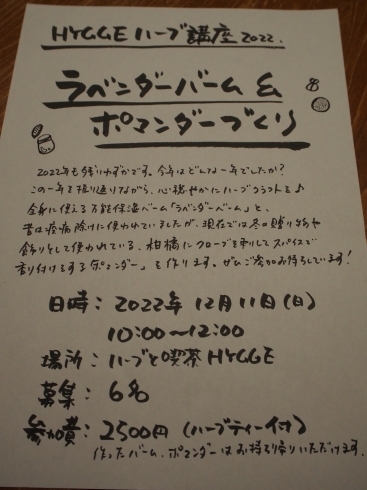 HYGGE ハーブ講座 2022.
ラベンダーバーム &
ポマンダーづくり
2022年も残りわずかです。今年はどんな一年でしたか？
この一年を振り返りながら、心穏やかにハーブクラフトを♪
全身に使える万能保湿バーム「ラベンダーバーム」と、
昔は疫病除けに使われていましたが、現在では冬の贈り物や
飾りとして使われている、柑橘にクローブを刺してスパイスで
香り付けをする「ポマンダー」を作ります。ぜひご参加お待ちしています！
日時：2022年 12月11日(日)
10:00〜12:00
場所：ハーブと喫茶 HYGGE
募集：6名
参加費：2500円 (ハーブティー付)
作ったバーム、ポマンダーはお持ち帰りいただけます。